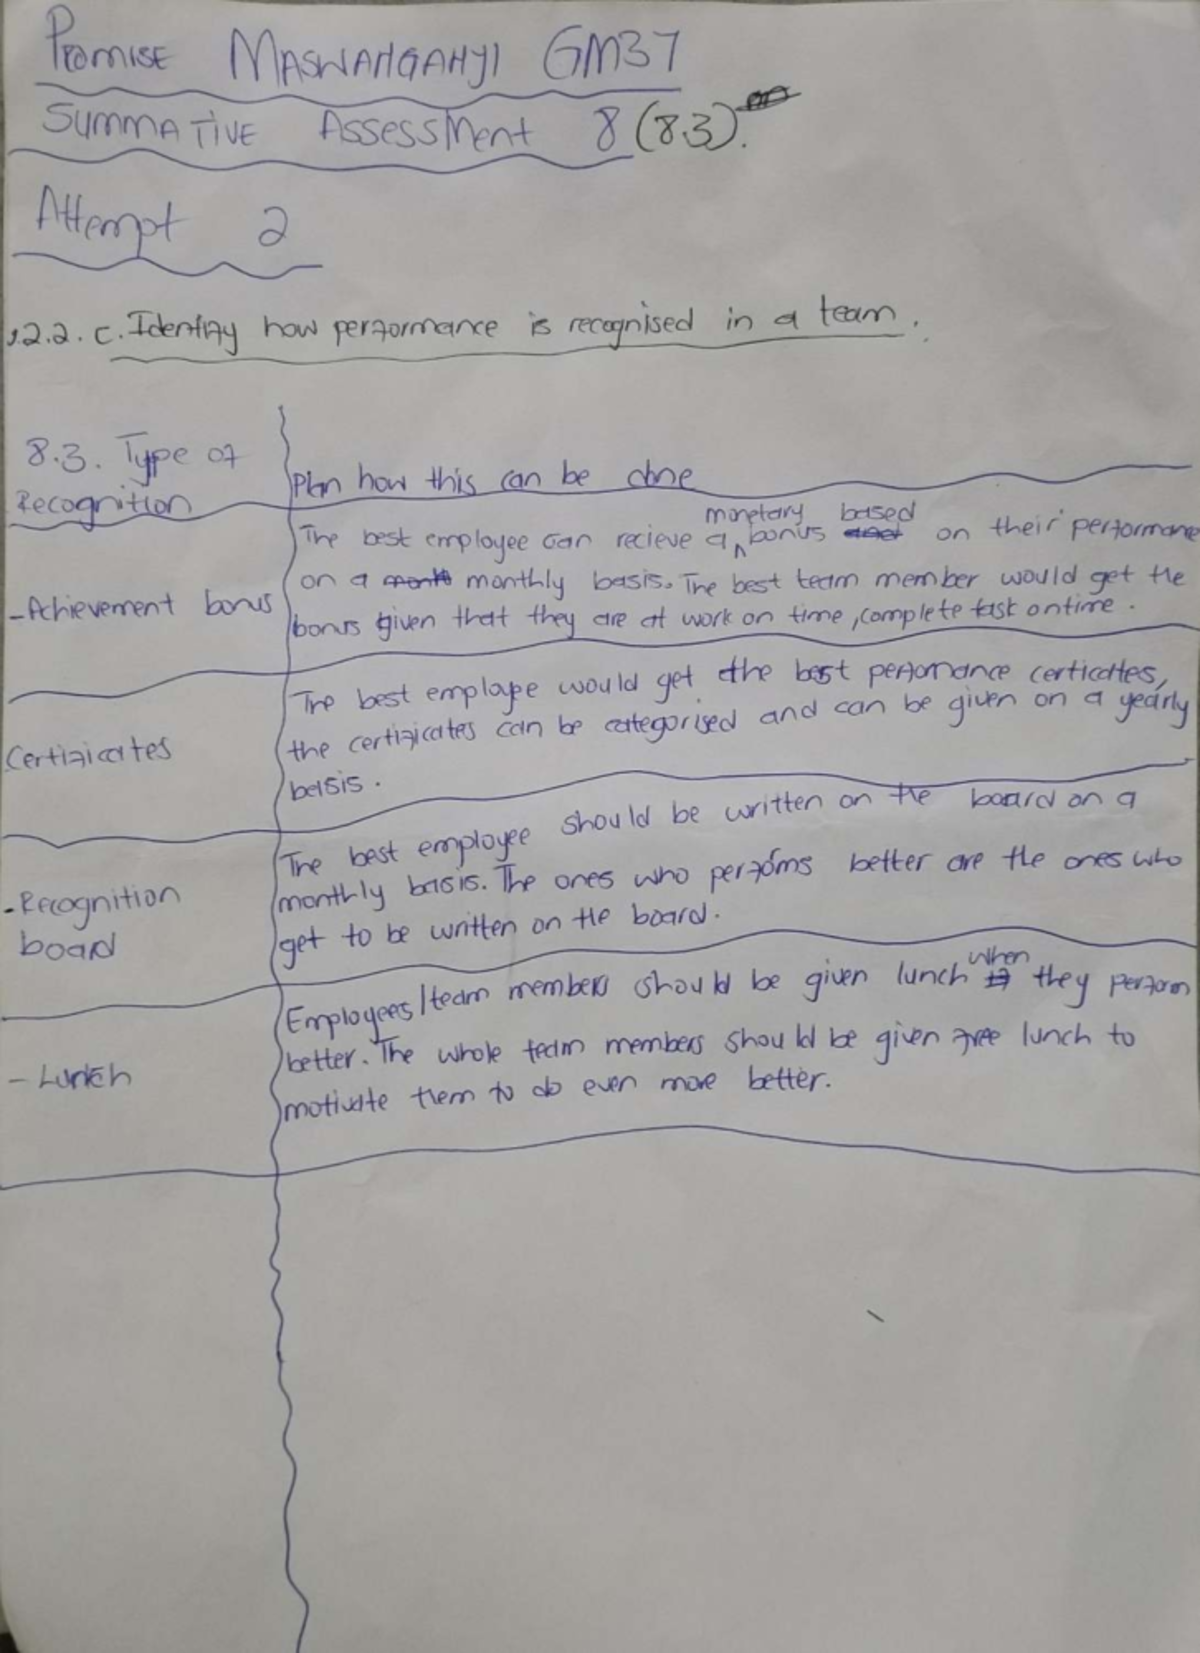 Promise Maswanganyi GM37
Summative Assessment 8 (8.3).
Attempt 2
.2.2. c. Identify how performance is recognised in a team.
8.3. Type of
Recognition
Plan how this can be done
- Achievement bonus
monetary based
The best employee can recieve a bonus on their performance
on a monthly basis. The best team member would get the
bonus given that they are at work on time, complete task on time.
Certificates
The best employee would get the best perfomance certicates,
the certificates can be categorised and can be given on a yearly
basis.
- Recognition
board
The best employee should be written on the board on a
monthly basis. The ones who perfoms better are the ones who
get to be written on the board.
- Lunch
when
Employees/team members should be given lunch they perform
better. The whole team members should be given free lunch to
motivate them to do even more better.